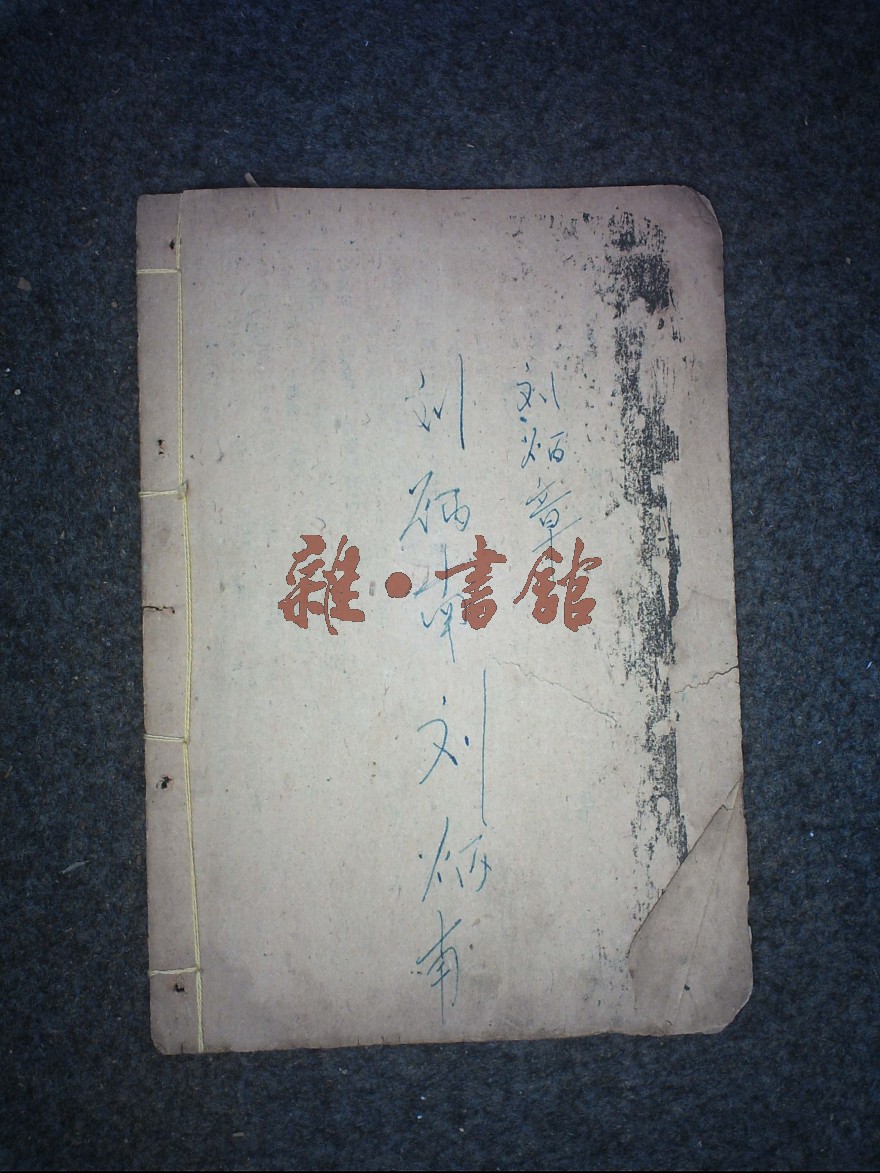 刘炳章
刘炳南 刘炳南
雜·書館